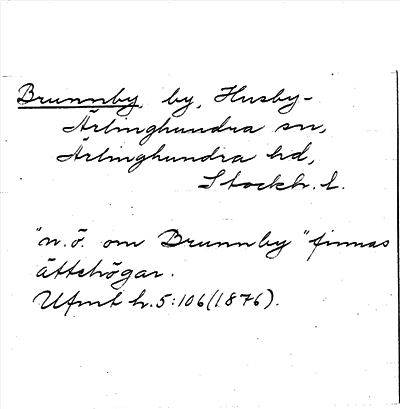 Brunnby, by, Husby-
Ärlinghundra sn,
Ärlinghundra hd,
Stockh. l.
"n.ö. om Brunnby" finnas
ättehögar.
Ufmt h.5:106(1876).